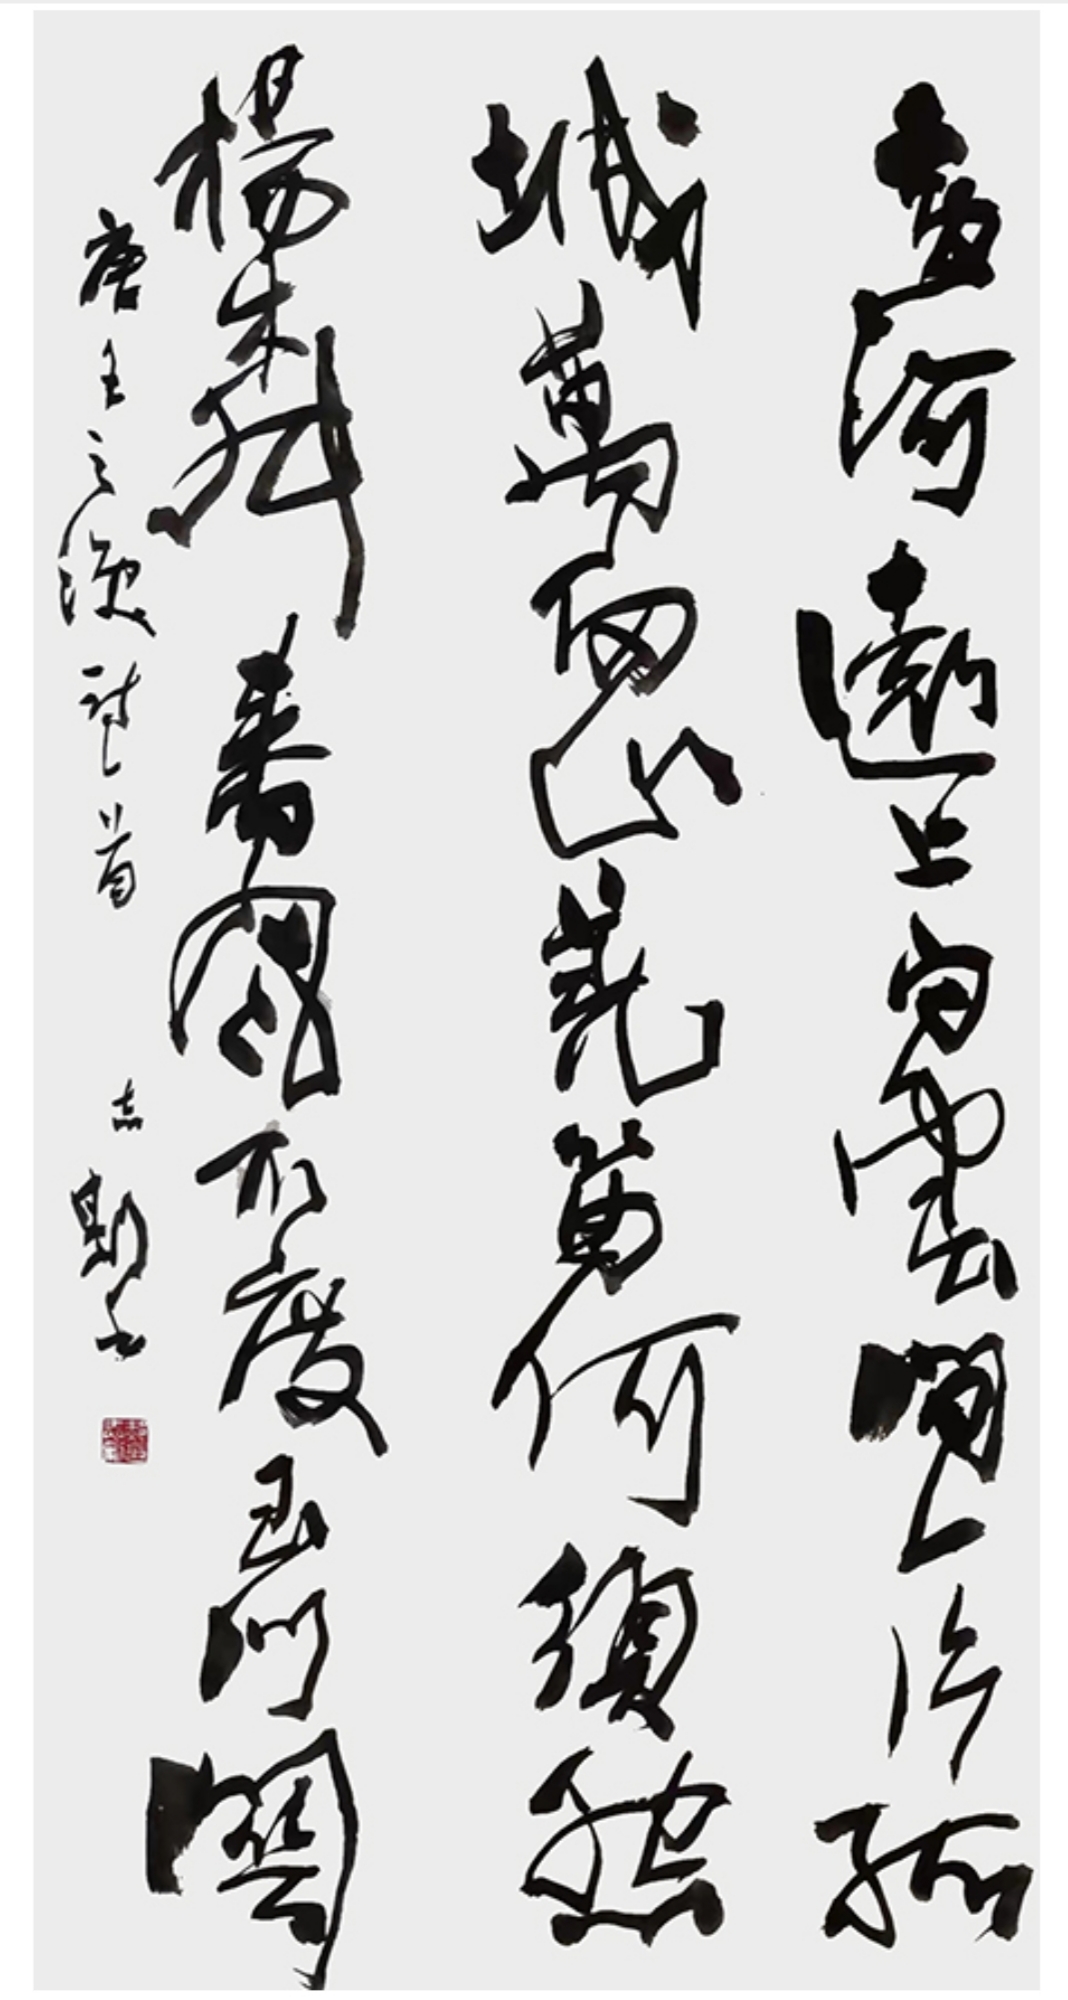 黄河遠上白雲間一片孤
城萬仞山羌笛何須怨
楊柳春風不度玉門關
唐王之渙詩一首 志勛書